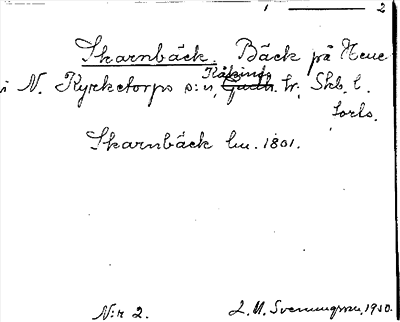 1 — 2
Skarnbäck. Bäck på Hene
i N. Kyrketorps s:n, Kåkinds hr, Skb. l.
Skarnbäck lm. 1801.
N:r 2. L. M. Svenungsson, 1930.